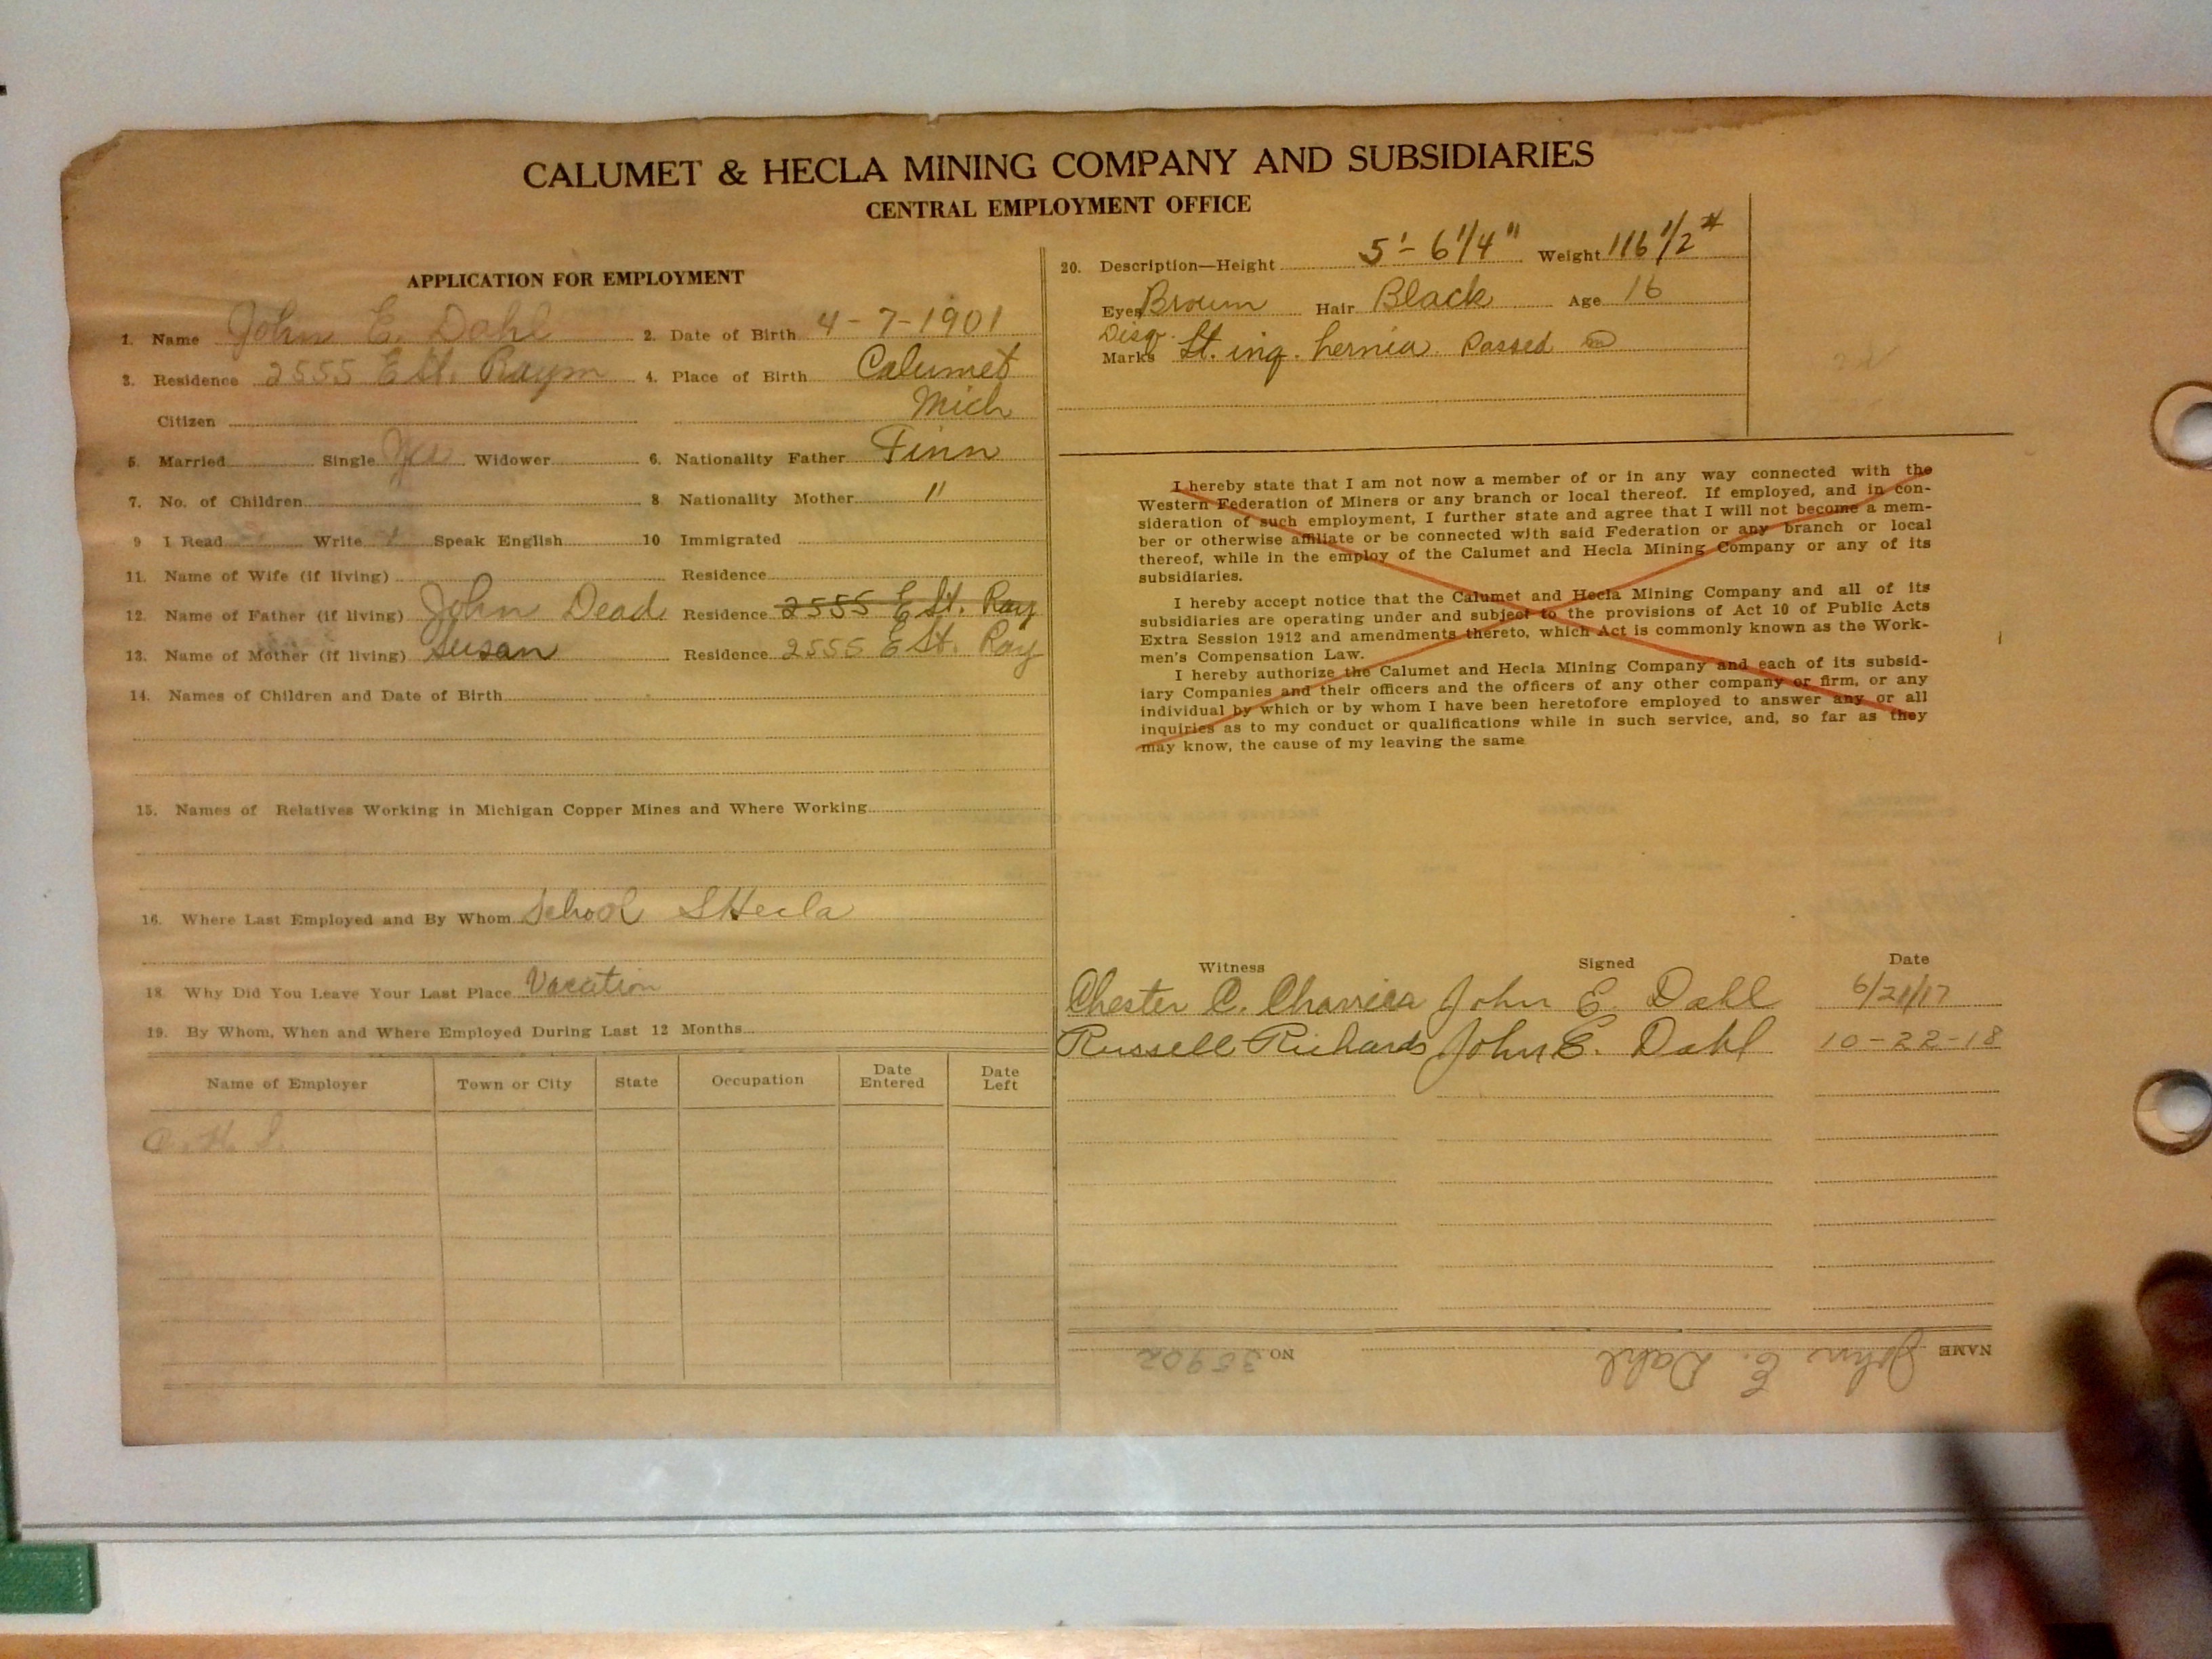 CALUMET & HECLA MINING COMPANY AND SUBSIDIARIES
CENTRAL EMPLOYMENT OFFICE
APPLICATION FOR EMPLOYMENT
1. Name John E. Dahl 2. Date of Birth 4-7-1901
3. Residence 2555 E St. Raym 4. Place of Birth Calumet
Citizen Mich
5. Married Single Yes Widower 6. Nationality Father Finn
7. No. of Children 8 Nationality Mother "
9 I Read Write Speak English 10 Immigrated
11. Name of Wife (if living) Residence
12. Name of Father (if living) John Dead Residence 2555 E St. Ray
13. Name of Mother (if living) Susan Residence 2555 E St. Ray
14. Names of Children and Date of Birth
15. Names of Relatives Working in Michigan Copper Mines and Where Working
16. Where Last Employed and By Whom School SHecla
18. Why Did You Leave Your Last Place Vacation
19. By Whom, When and Where Employed During Last 12 Months
Name of Employer Town or City State Occupation Date Entered Date Left
20. Description—Height 5'-6 1/4" Weight 116 1/2 #
Eyes Brown Hair Black Age 16
Disq.
Marks Lt. ing. hernia. Passed
I hereby state that I am not now a member of or in any way connected with the
Western Federation of Miners or any branch or local thereof. If employed, and in con-
sideration of such employment, I further state and agree that I will not become a mem-
ber or otherwise affiliate or be connected with said Federation or any branch or local
thereof, while in the employ of the Calumet and Hecla Mining Company or any of its
subsidiaries.
I hereby accept notice that the Calumet and Hecla Mining Company and all of its
subsidiaries are operating under and subject to the provisions of Act 10 of Public Acts
Extra Session 1912 and amendments thereto, which Act is commonly known as the Work-
men's Compensation Law.
I hereby authorize the Calumet and Hecla Mining Company and each of its subsid-
iary Companies and their officers and the officers of any other company or firm, or any
individual by which or by whom I have been heretofore employed to answer any or all
inquiries as to my conduct or qualifications while in such service, and, so far as they
may know, the cause of my leaving the same
Witness Signed Date
Chester C. John E. Dahl 6/21/17
Russell Richards John E. Dahl 10-22-18
NAME John E. Dahl NO. 35902